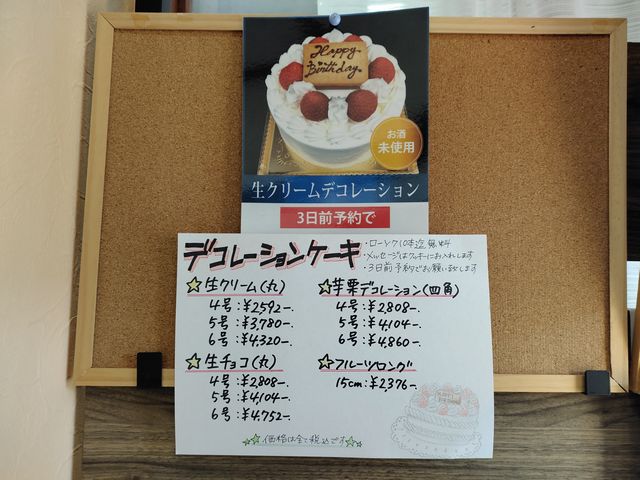 Happy
Birthday
お酒
未使用
生クリームデコレーション
3日前予約で
デコレーションケーキ
・ローソク10本迄無料
・メッセージはクッキーにお入れします
・3日前予約でお願い致します
生クリーム(丸)
4号:¥2,592-.
5号:¥3,780-.
6号:¥4,320-.
生チョコ(丸)
4号:¥2,808-.
5号:¥4,104-.
6号:¥4,752-.
芋栗デコレーション(四角)
4号:¥2,808-.
5号:¥4,104-.
6号:¥4,860-.
フルーツロング
15cm:¥2,376-.
価格は全て税込です